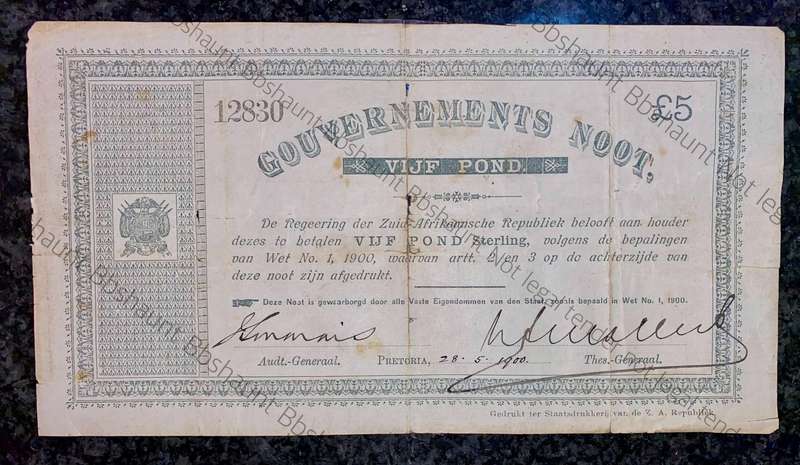 12830
£5
GOUVERNEMENTS NOOT,
VIJF POND.
De Regeering der Zuid-Afrikaansche Republiek belooft aan houder
dezes te betalen VIJF POND Sterling, volgens de bepalingen
van Wet No. 1, 1900, waarvan artt. 2 en 3 op de achterzijde van
deze noot zijn afgedrukt.
Deze Noot is gewaarborgd door alle Vaste Eigendommen van den Staat, zooals bepaald in Wet No. 1, 1900.
Audt.-Generaal. PRETORIA, 28. 5. 1900. Thes.-Generaal.
Gedrukt ter Staatsdrukkerij van de Z. A. Republiek.
Bbshaunt Not legal tender